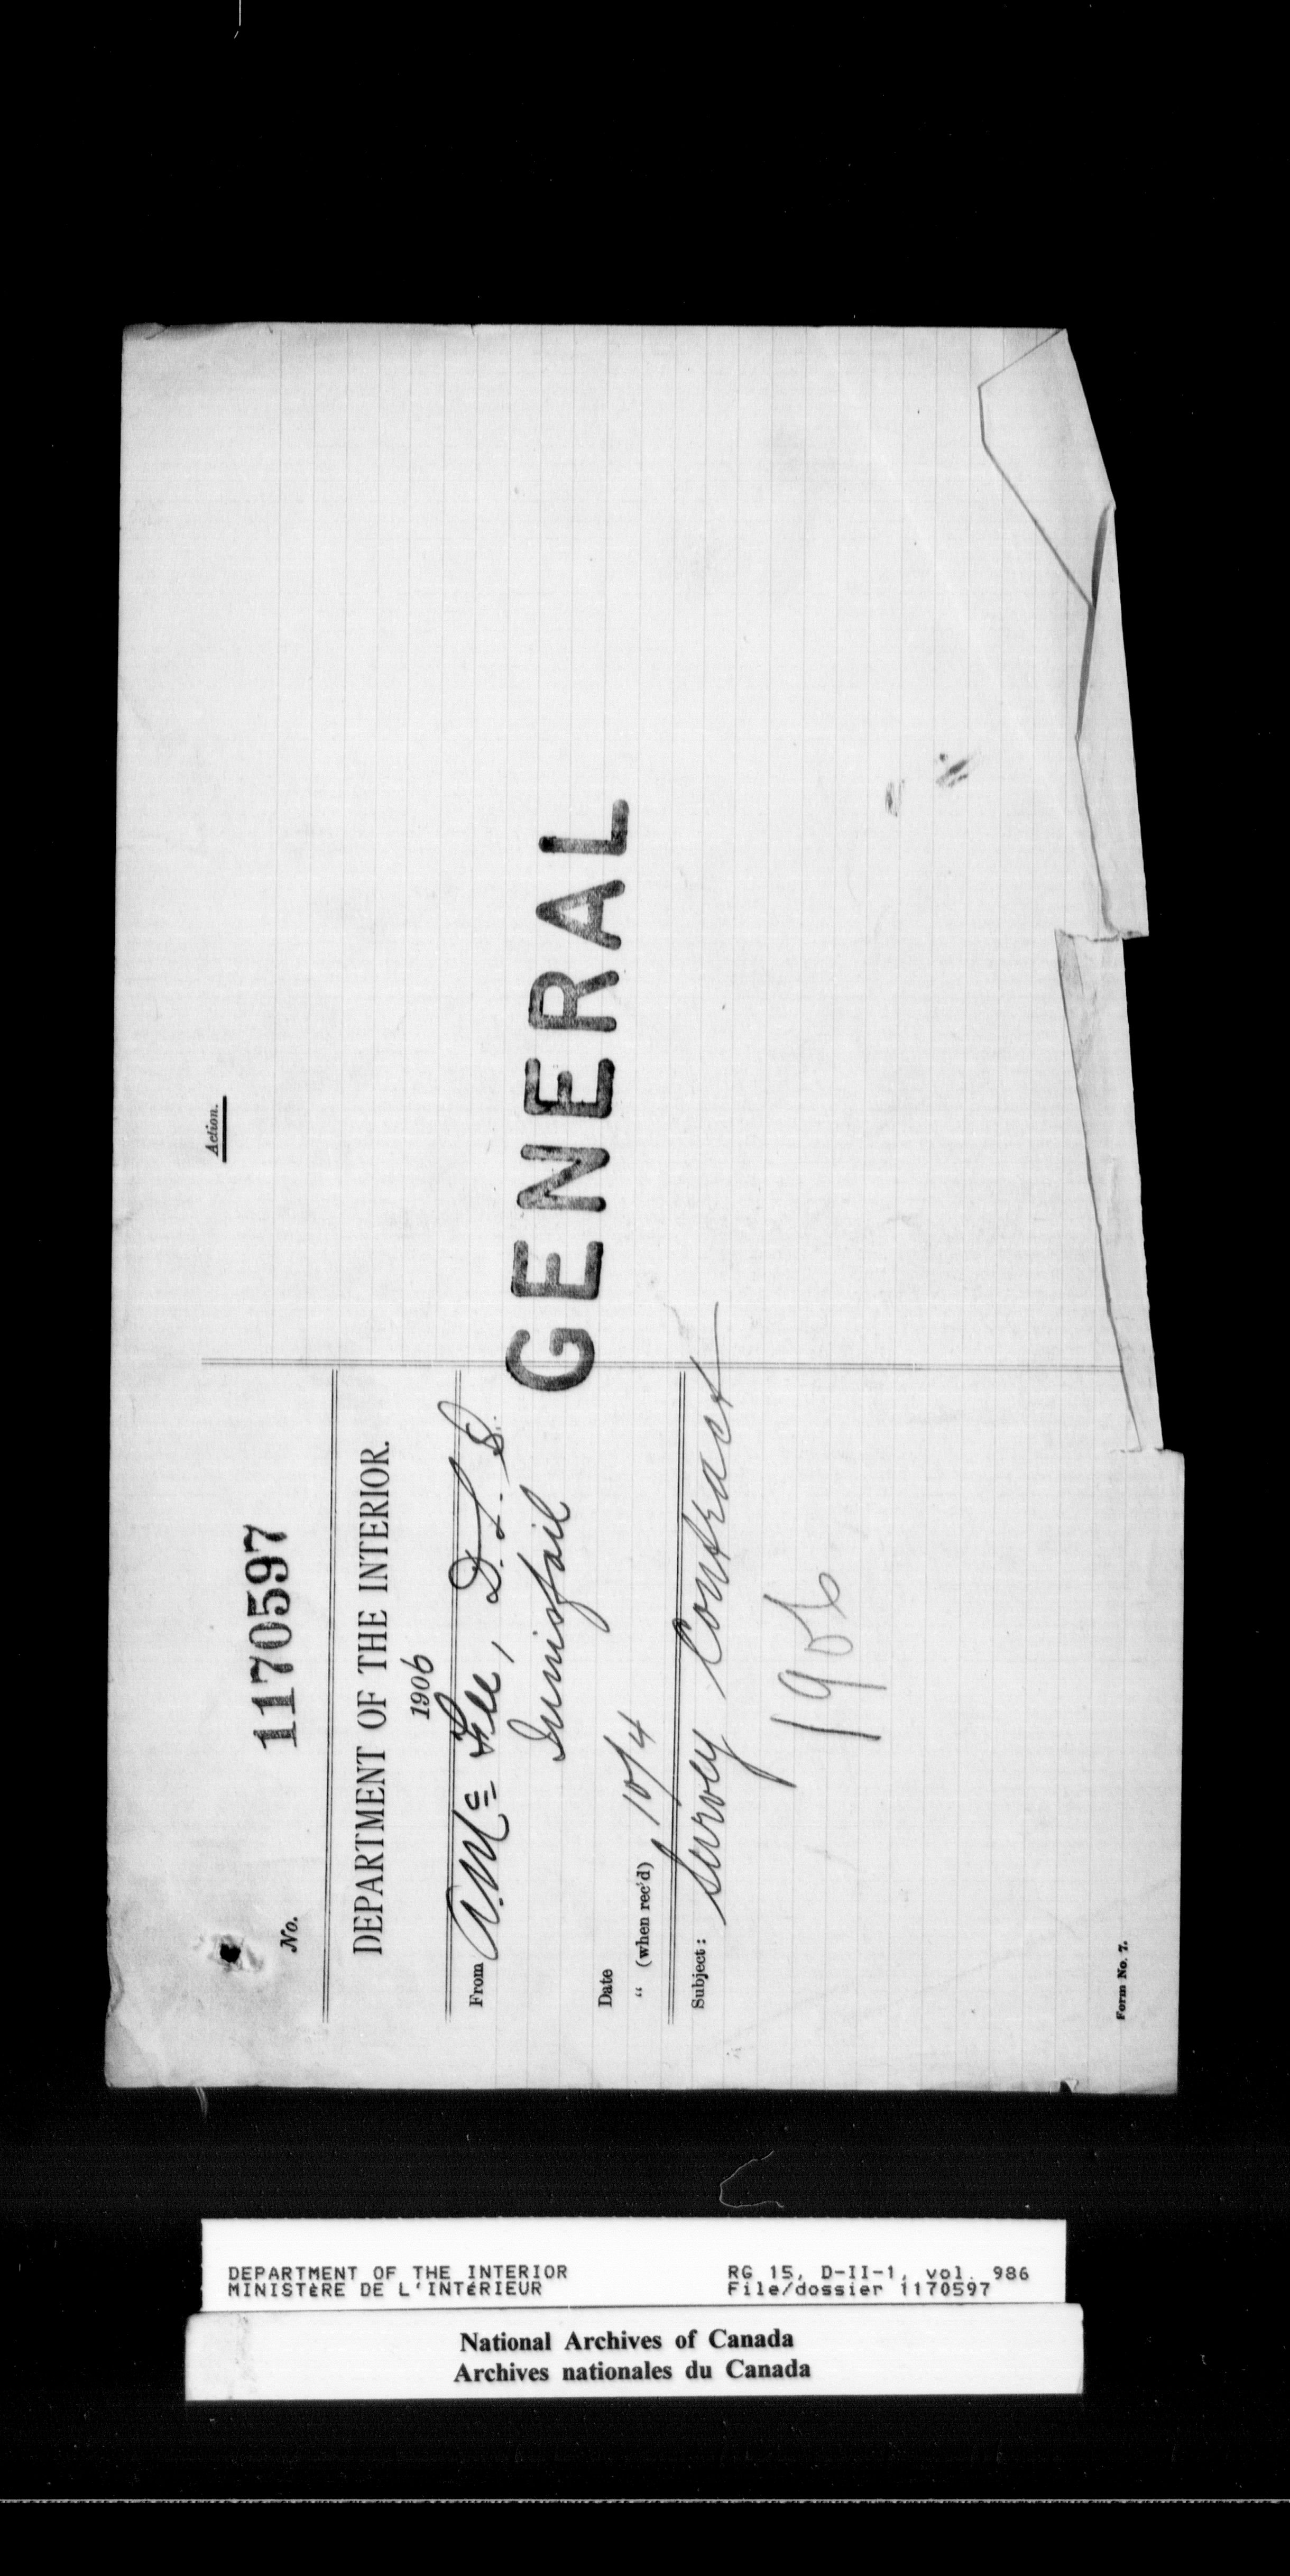 No. 1170597
DEPARTMENT OF THE INTERIOR.
1906
From A. Mc Fee, D. L. S.
Innisfail
Date
“ (when rec'd) 10/4
Subject: Survey Contract
1906
Form No. 7.
Action.
GENERAL
DEPARTMENT OF THE INTERIOR
MINISTÈRE DE L'INTÉRIEUR
RG 15, D-II-1, vol. 986
File/dossier 1170597
National Archives of Canada
Archives nationales du Canada